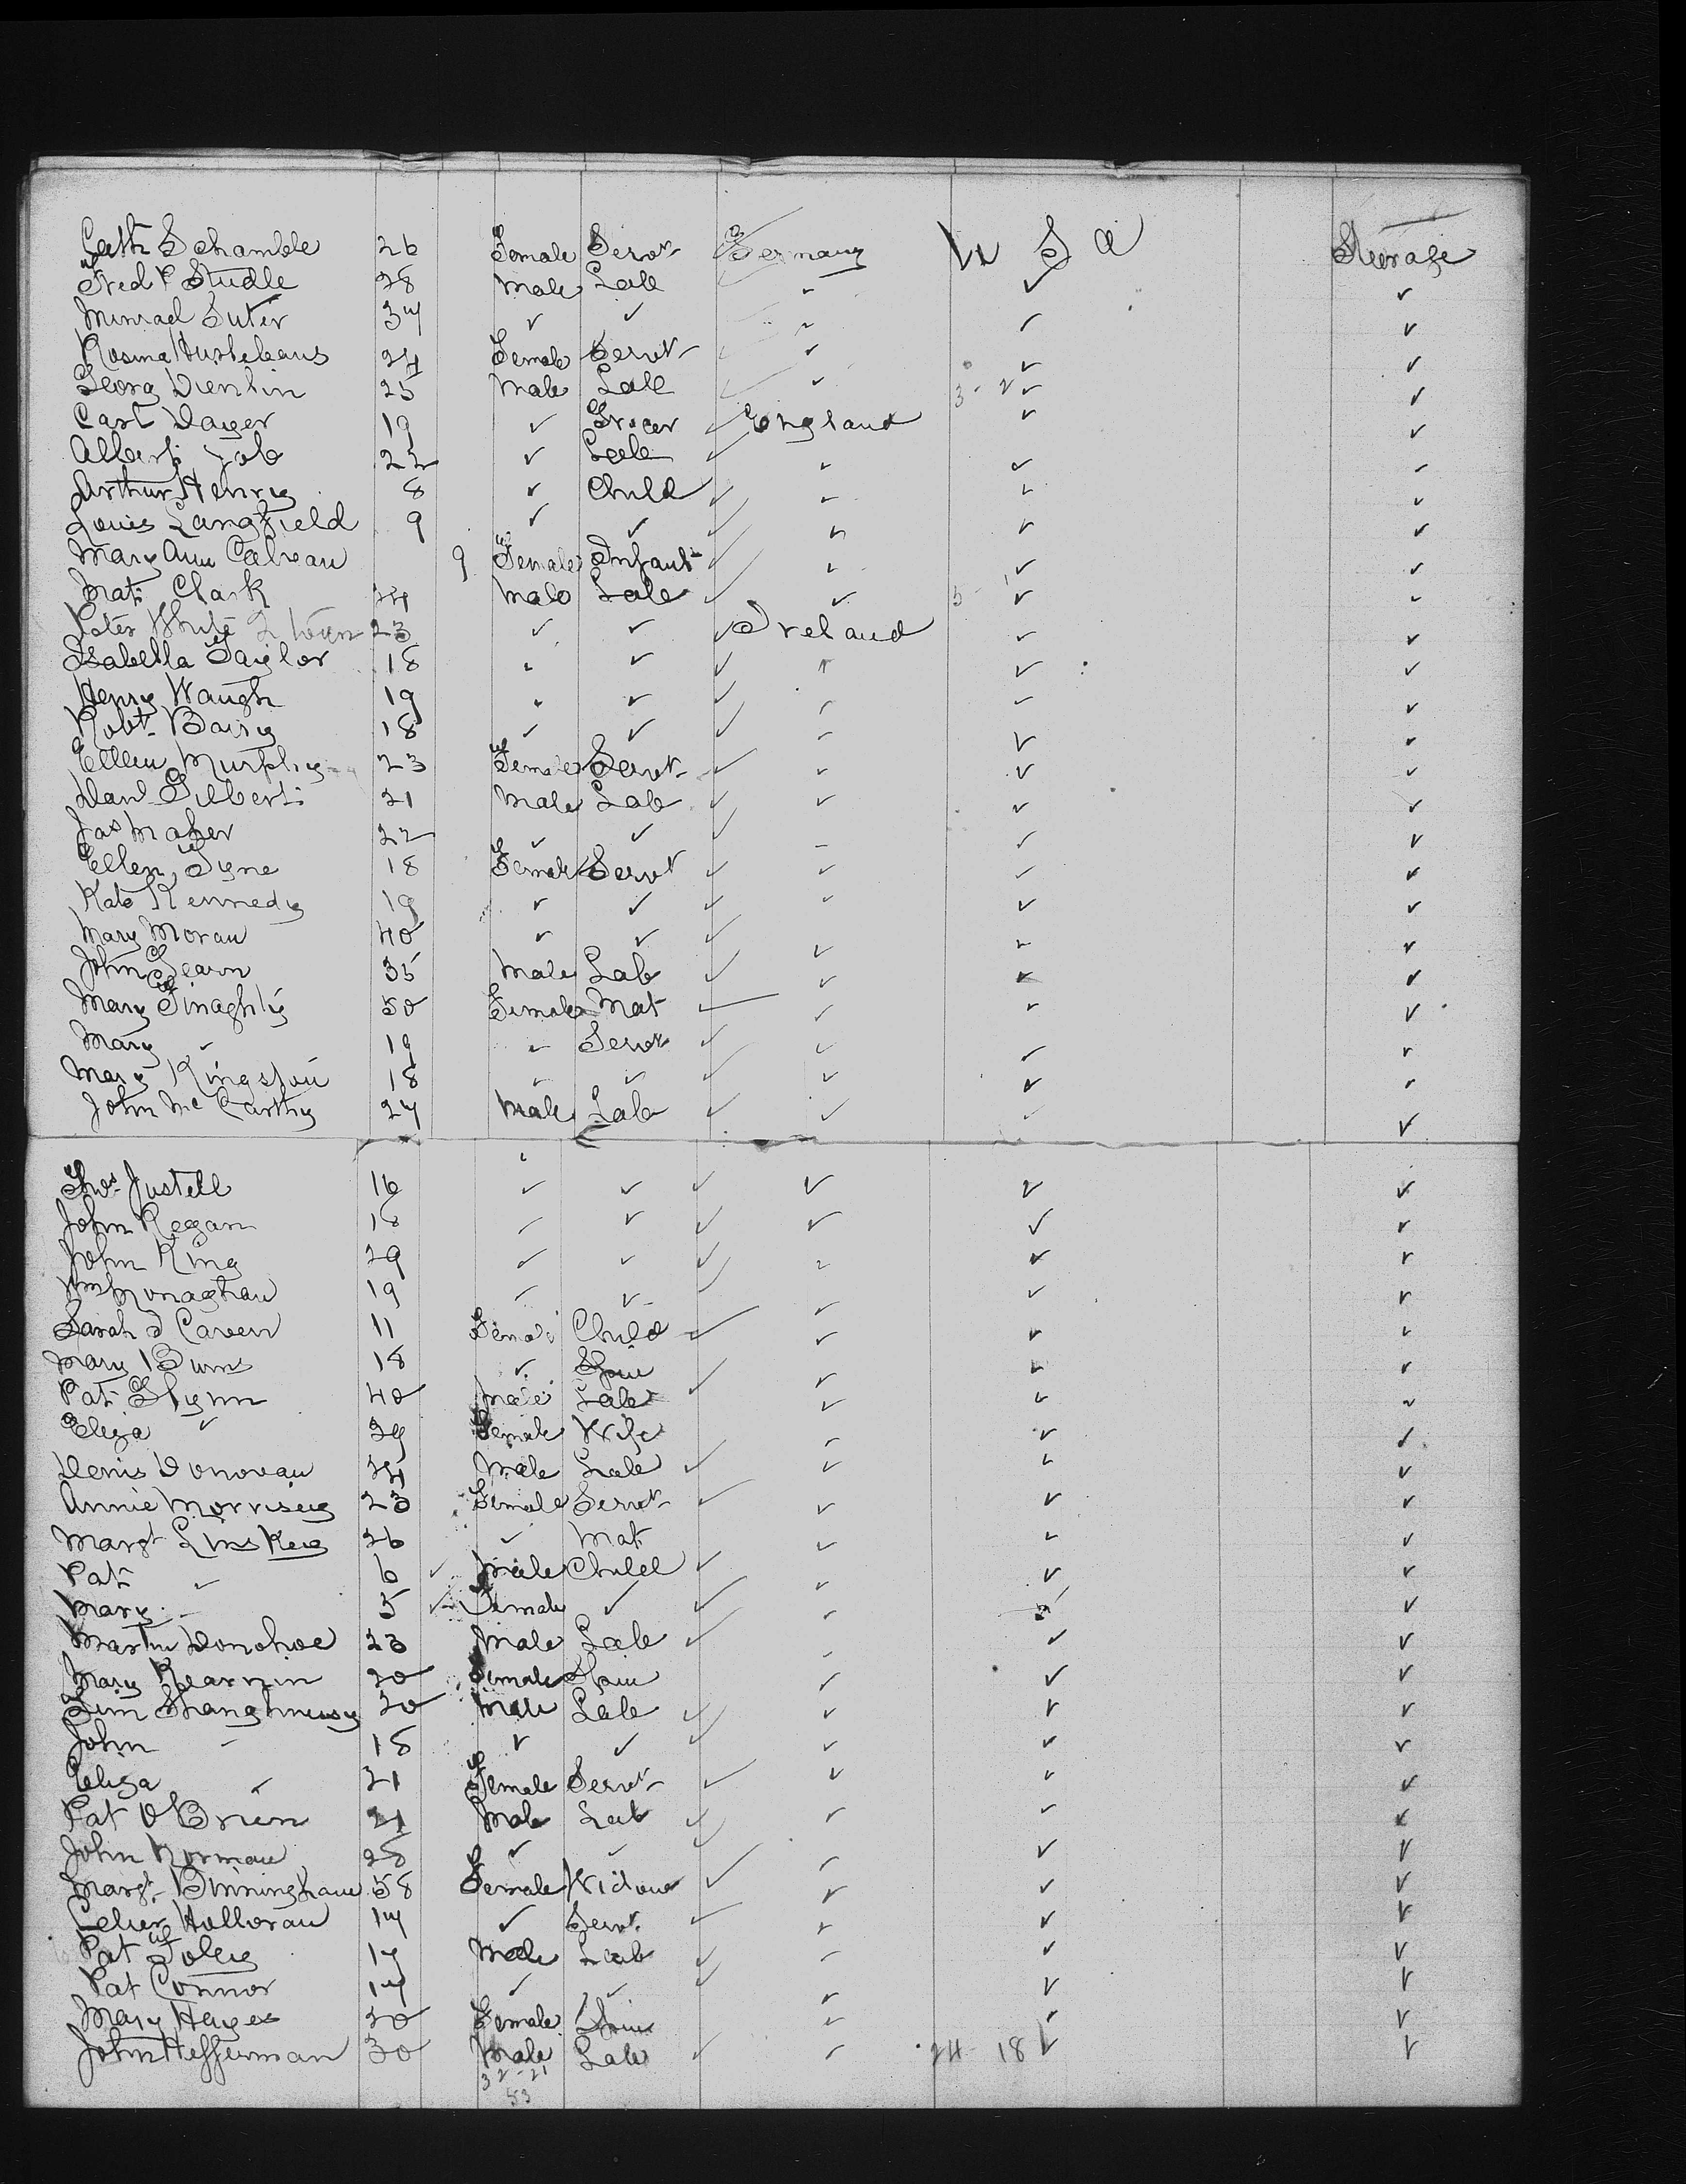 Cath Schamble 26 Female Servt Germany U S A Steerage
Fred K Studle 28 Male Lab ✓ ✓ ✓
Minrad Suter 34 ✓ ✓ ✓ ✓ ✓
Rosina 24 Female Servt ✓ ✓ ✓
Georg Dienlin 25 Male Lab ✓ 3 - 2 ✓ ✓
Carl Dager 19 ✓ Grocer ✓ England ✓ ✓
Albert Job 22 ✓ Lab ✓ ✓ ✓ ✓
Arthur Henry 8 ✓ Child ✓ ✓ ✓ ✓
Louis Langfield 9 ✓ ✓ ✓ ✓ ✓ ✓
Mary Ann Calveau 9 Female Infant ✓ ✓ ✓ ✓
Mat Clark 24 Male Lab ✓ ✓ 5 - 1 ✓ ✓
Peter White 23 ✓ ✓ ✓ Ireland ✓ ✓
Isabella Taylor 18 ✓ ✓ ✓ ✓ ✓ ✓
Henry Waugh 19 ✓ ✓ ✓ ✓ ✓ ✓
Robt Baisy 18 ✓ ✓ ✓ ✓ ✓ ✓
Ellen Murphy 23 Female Servt ✓ ✓ ✓ ✓
Danl Gilbert 21 Male Lab ✓ ✓ ✓ ✓
Jas Maher 22 ✓ ✓ ✓ ✓ ✓ ✓
Ellen Tyne 18 Female Servt ✓ ✓ ✓ ✓
Kate Kennedy 19 ✓ ✓ ✓ ✓ ✓ ✓
Mary Moran 40 ✓ ✓ ✓ ✓ ✓ ✓
John Gearn 35 Male Lab ✓ ✓ ✓ ✓
Mary Finaghty 50 Female Mat ✓ ✓ ✓ ✓
Mary ✓ 19 ✓ Servt ✓ ✓ ✓ ✓
Mary Kingston 18 ✓ ✓ ✓ ✓ ✓ ✓
John McCarthy 24 Male Lab ✓ ✓ ✓ ✓
Thos Justell 16 ✓ ✓ ✓ ✓ ✓ ✓
John Regan 18 ✓ ✓ ✓ ✓ ✓ ✓
John King 29 ✓ ✓ ✓ ✓ ✓ ✓
Wm Monaghan 19 ✓ ✓ ✓ ✓ ✓
Sarah J Caven 11 Female Child ✓ ✓ ✓ ✓
Mary Burns 18 ✓ Spin ✓ ✓ ✓
Pat Glynn 40 Male Lab ✓ ✓ ✓ ✓
Eliza ✓ 39 Female Wife ✓ ✓ ✓
Denis Donovan 24 Male Lab ✓ ✓ ✓ ✓
Annie Morrisey 23 Female Servt ✓ ✓ ✓ ✓
Margt Linskey 26 ✓ Mat ✓ ✓ ✓
Pat ✓ 6 ✓ Male Child ✓ ✓ ✓ ✓
Mary - 5 ✓ Female ✓ ✓ ✓ ✓ ✓
Martin Donohoe 23 Male Lab ✓ ✓ ✓ ✓
Mary Kearnin 20 Female Spin ✓ ✓ ✓
Tim Shanghnussy 20 Male Lab ✓ ✓ ✓ ✓
John - 18 ✓ ✓ ✓ ✓ ✓ ✓
Eliza ✓ 21 Female Servt ✓ ✓ ✓ ✓
Pat OBrien 21 Male Lab ✓ ✓ ✓ ✓
John Norman 28 ✓ ✓ ✓ ✓ ✓ ✓
Margt Binningham 58 Female Widow ✓ ✓ ✓ ✓
Celier Holloran 14 ✓ Servt ✓ ✓ ✓ ✓
Pat Foley 17 Male Lab ✓ ✓ ✓ ✓
Pat Connor 14 ✓ ✓ ✓ ✓ ✓ ✓
Mary Hayes 20 Female Spin ✓ ✓ ✓
John Hefferman 30 Male Lab ✓ ✓ 24 - 18 ✓ ✓
32 - 21
53